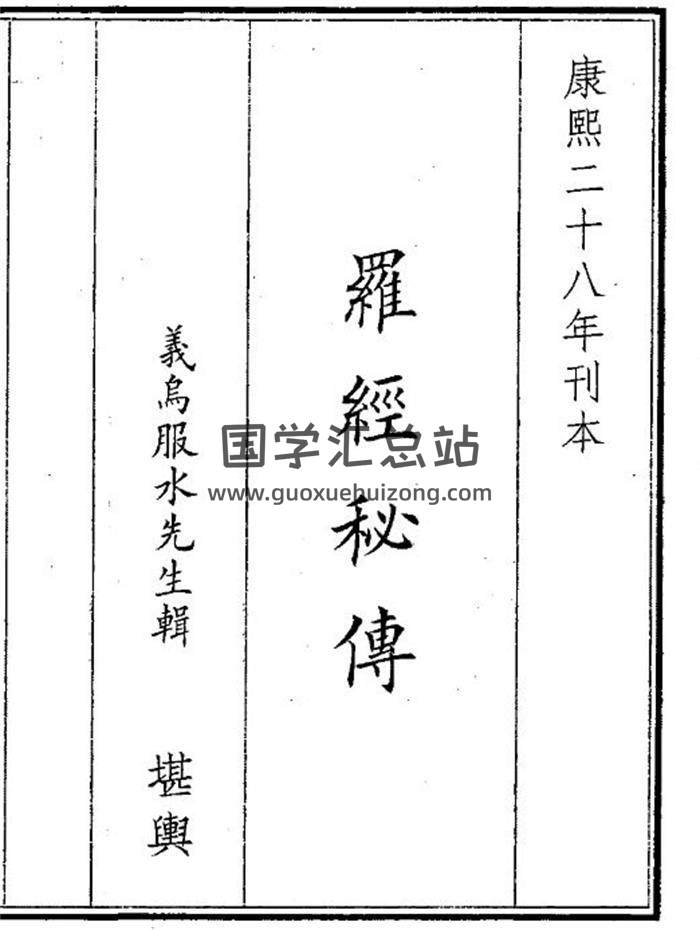 康熙二十八年刊本
羅經秘傳
義烏服水先生輯 堪輿
国学汇总站
www.guoxuehuizong.com